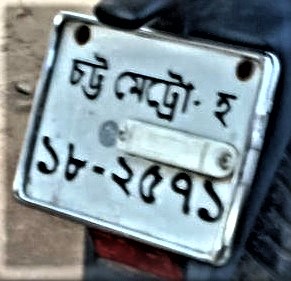 চট্ট মেট্রো- হ
১৮-২৫৭১